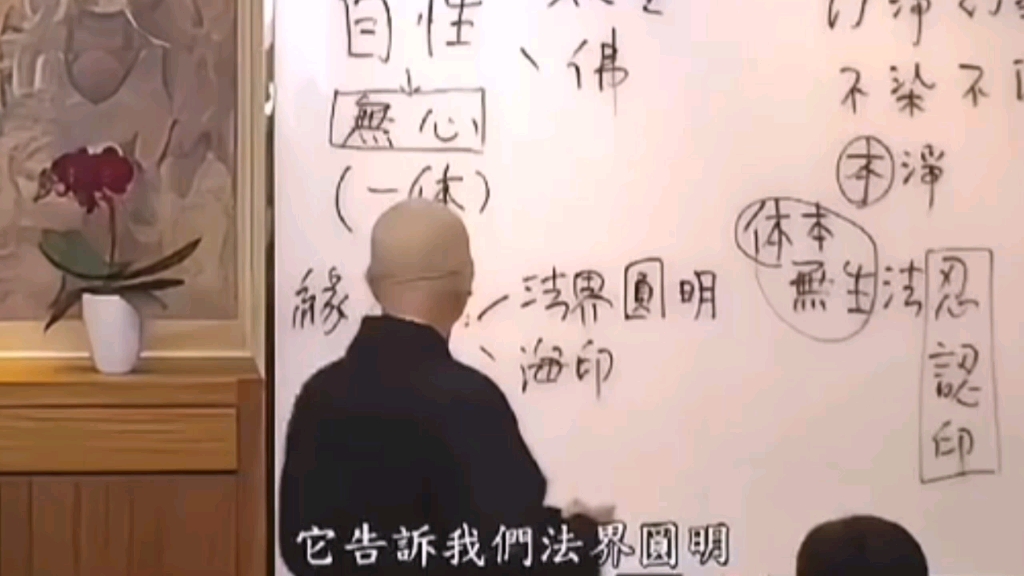 自性
、佛
無心
(一体)
緣
法界圓明
海印
不染不
本淨
体本
無生法忍
認
印
它告訴我們法界圓明